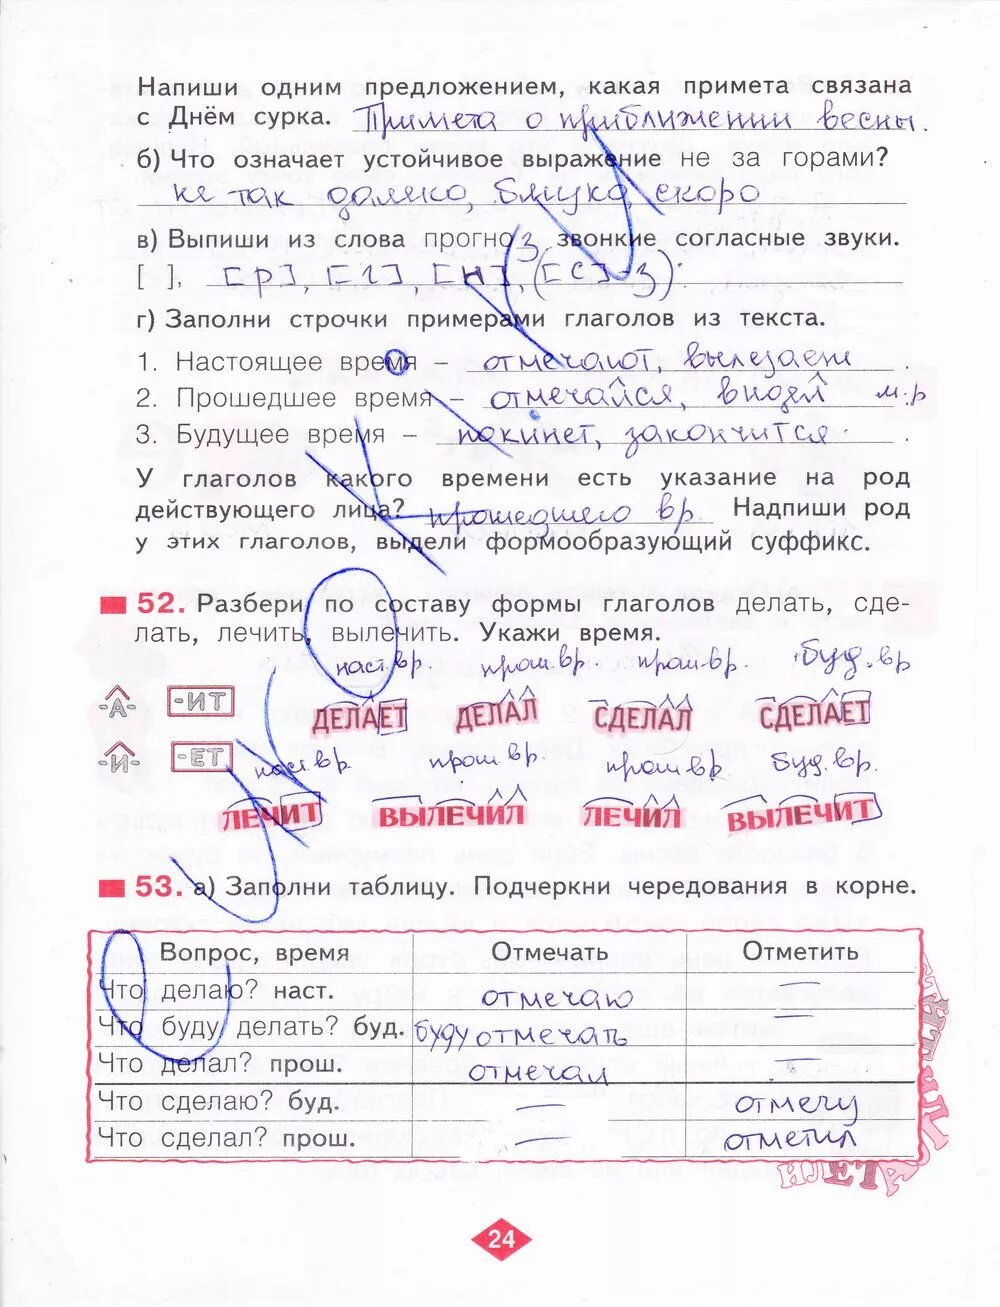 Напиши одним предложением, какая примета связана
с Днём сурка. Примета о приближении весны.
б) Что означает устойчивое выражение не за горами?
не так далеко, близко, скоро
в) Выпиши из слова прогноз звонкие согласные звуки.
[ ], [р], [г], [н], ([с]-з).
г) Заполни строчки примерами глаголов из текста.
1. Настоящее время – отмечают, вылезает.
2. Прошедшее время – отмечался, видел м.р
3. Будущее время – покинет, закончится.
У глаголов какого времени есть указание на род
действующего лица? прошедшего вр. Надпиши род
у этих глаголов, выдели формообразующий суффикс.
52. Разбери по составу формы глаголов делать, сде-
лать, лечить, вылечить. Укажи время.
наст.вр. прош.вр. прош.вр. буд.вр
-А- -ИТ ДЕЛАЕТ ДЕЛАЛ СДЕЛАЛ СДЕЛАЕТ
-И- -ЕТ наст.вр прош.вр. прош.вр буд.вр.
ЛЕЧИТ ВЫЛЕЧИЛ ЛЕЧИЛ ВЫЛЕЧИТ
53. а) Заполни таблицу. Подчеркни чередования в корне.
Вопрос, время Отмечать Отметить
Что делаю? наст. отмечаю —
Что буду делать? буд. буду отмечать —
Что делал? прош. отмечал —
Что сделаю? буд. — отмечу
Что сделал? прош. — отметил
24